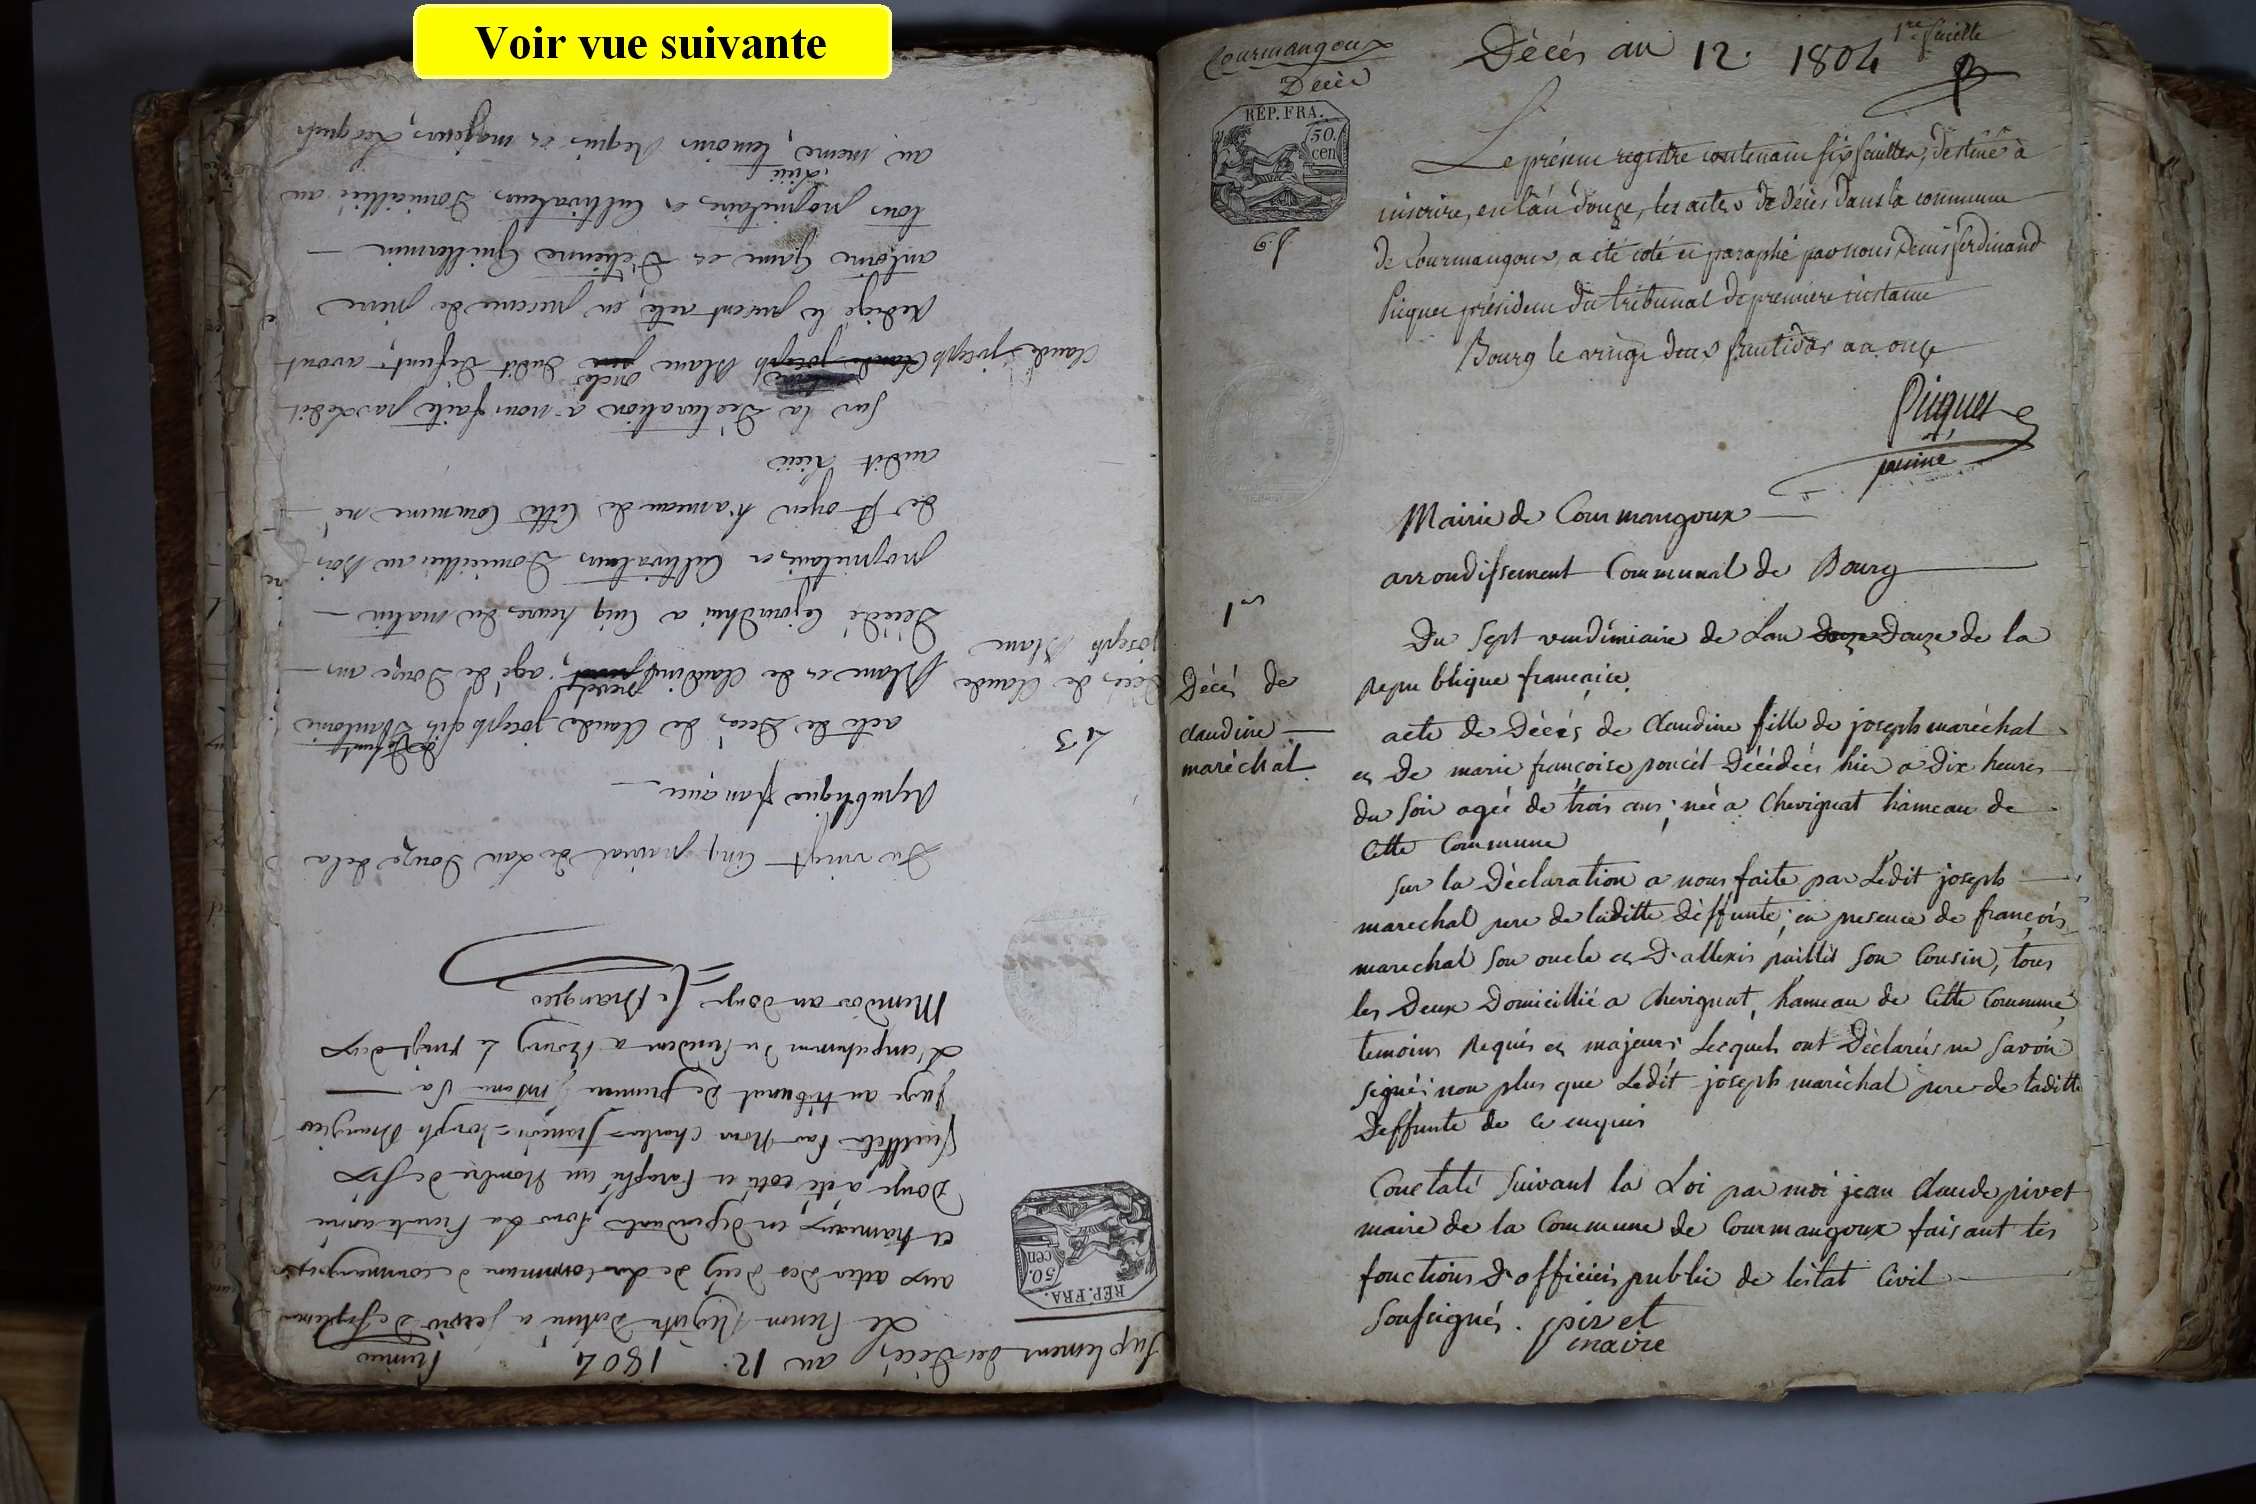 Voir vue suivante
Suplement des Décès an 12. 1804
Premier
Le present Registre destiné a servir de suplement
aux actes des Decès de la Commune de courmangoux
et hameaux en dépendants pour la presente année
Douze, a été coté et Paraphé au Nombre de six
feuillets Par Nous Charles-françois-Joseph
juge au tribunal de premiere instance
L'empechement du President a Bourg le vingt deux
Messidor an douze
REP. FRA.
50. cen
Du vingt Cinq prairial de Lan Douze de la
Republique française
43
Décès de Claude joseph Blanc
acte de Décès de Claude joseph fils D'antoine
Blanc et de Claudine pivet, agé de Douze ans
Décédé Cejourdhui a Cinq heures du matin
proprietaires et Cultivateurs Domiciliés au
de hameau de Cette Commune né
audit Lieu
Sur la Déclaration a nous faite par Ledit
Claude joseph Blanc oncle dudit defunt, avons
Redigé le present acte, en presence de pierre
antoine et D'etienne Guillermin
tous proprietaires et Cultivateurs Domiciliés au
Lieu
au meme, temoins Requis et majeurs, Lesquels
Courmangoux
Décès
REP. FRA.
50. cen
Décès an 12. 1804
1re feuille
Le présent registre contenant six feuilles, destiné à
inscrire, en l'an douze, les actes de Décès dans la commune
de Courmangoux, a été coté et paraphé par nous Denis ferdinand
Picquet président du tribunal de premiere instance
Bourg le vingt deux fructidor an onze
Picquet
Mairie de Courmangoux
arrondissement Communal de Bourg
1er
Du Sept vendémiaire de Lan douze Douze de la
Republique française
Décès de
claudine
maréchal
acte de Décès de Claudine fille de joseph maréchal
et De marie françoise poncet Décédée hier a Dix heures
du Soir agée de trois ans; née a Chevignat hameau de
Cette Commune
Sur la Déclaration a nous faite par Ledit joseph
marechal pere de laditte deffunte; en presence de françois
marechal Son oncle et D'allexis paillet Son Cousin, tous
les Deux Domicillié a Chevignat, hameau de Cette Commune
temoins Requis et majeurs; Lesquels ont Déclarés ne Savoir
Signé; non plus que Ledit joseph maréchal pere de laditte
Deffunte de ce enquis
Constaté Suivant la Loi par moi jean Claude pivet
maire de la Commune de Courmangoux faisant les
fonctions D'officier public de létat Civil
Soussignés. pivet
maire